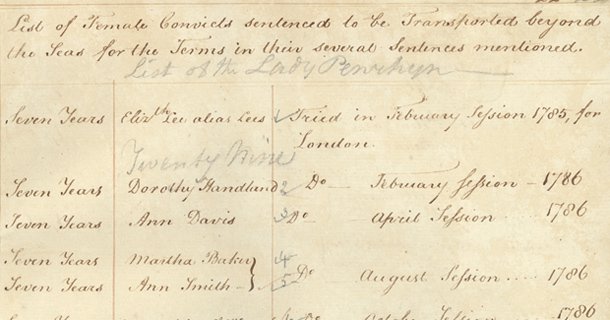 List of Female Convicts sentenced to be Transported beyond
the Seas for the Terms in their several Sentences mentioned.
List of the Lady Penrhyn
Seven Years Elizth Lee alias Lees 1 Tried in February Session 1785, for
London.
Twenty Nine
Seven Years Dorothy Handland 2 Do February Session - 1786
Seven Years Ann Davis 3 Do April Session 1786
Seven Years Martha Baker 4
Seven Years Ann Smith 5 Do August Session .... 1786
Session 1786